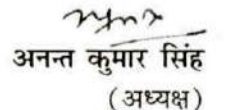 अनन्त कुमार सिंह
(अध्यक्ष)